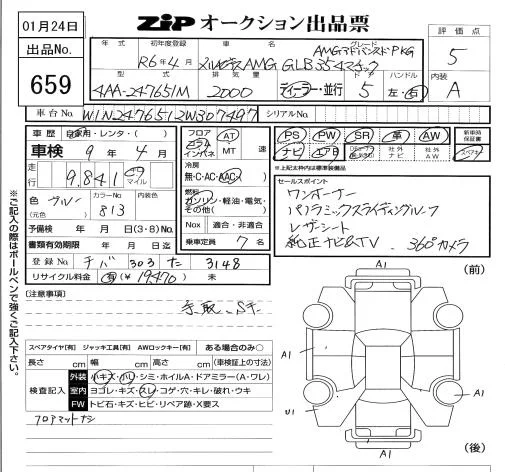 01月24日
ZIP オークション出品票
評価点
出品No.
659
5
内装
A
年式 初年度登録 車名 グレード
AMGアドバンスドPKG
R6年4月 メルセデスAMG GLB35 4マチック
型式 排気量 ドア ハンドル
4AA-247651M 2000 ディーラー・並行 5 左・右
車台No. W1N2476512W307497 シリアルNo.
車歴 自家用・レンタ・( )
車検 9年4月
走行 9,841 キロ マイル
色 (元色) ブルー カラーNo. 813 内装色
予備検 年 月 日(3・8)No.
書類有効期限 年 月 日迄
登録No. チバ 303 た 3148
リサイクル料金 有(¥19,470) 未
フロア コラム インパネ AT・MT 速
冷房 無・C・AC・AAC
燃料 ガソリン・軽油・電気・その他( )
Nox 適合・非適合
乗車定員 7名
PS PW SR 革 AW 新車時保証書
ナビ エアB 社外ナビ 社外AW
※上記太枠内は標準装備品
セールスポイント
ワンオーナー
パノラミックスライディングルーフ
レザーシート
純正ナビ&TV、360°カメラ
[注意事項]
スペアタイヤ[有] ジャッキ工具[有] AWロックキー[有] ある場合のみ○
長さ cm 幅 cm 高さ cm (車検証上の寸法)
検査記入
外装 小キズ・小ヘコ・シミ・ホイルA・ドアミラー(A・ワレ)
室内 ヨゴレ・キズ・スレ・コゲ・穴・キレ・破れ・ウキ
FW トビ石・キズ・ヒビ・リペア跡・X要ス
フロアマットナシ
※ご記入の際はボールペンで強くご記入下さい。
(前)
A1
A1
A1
U1
A1
(後)